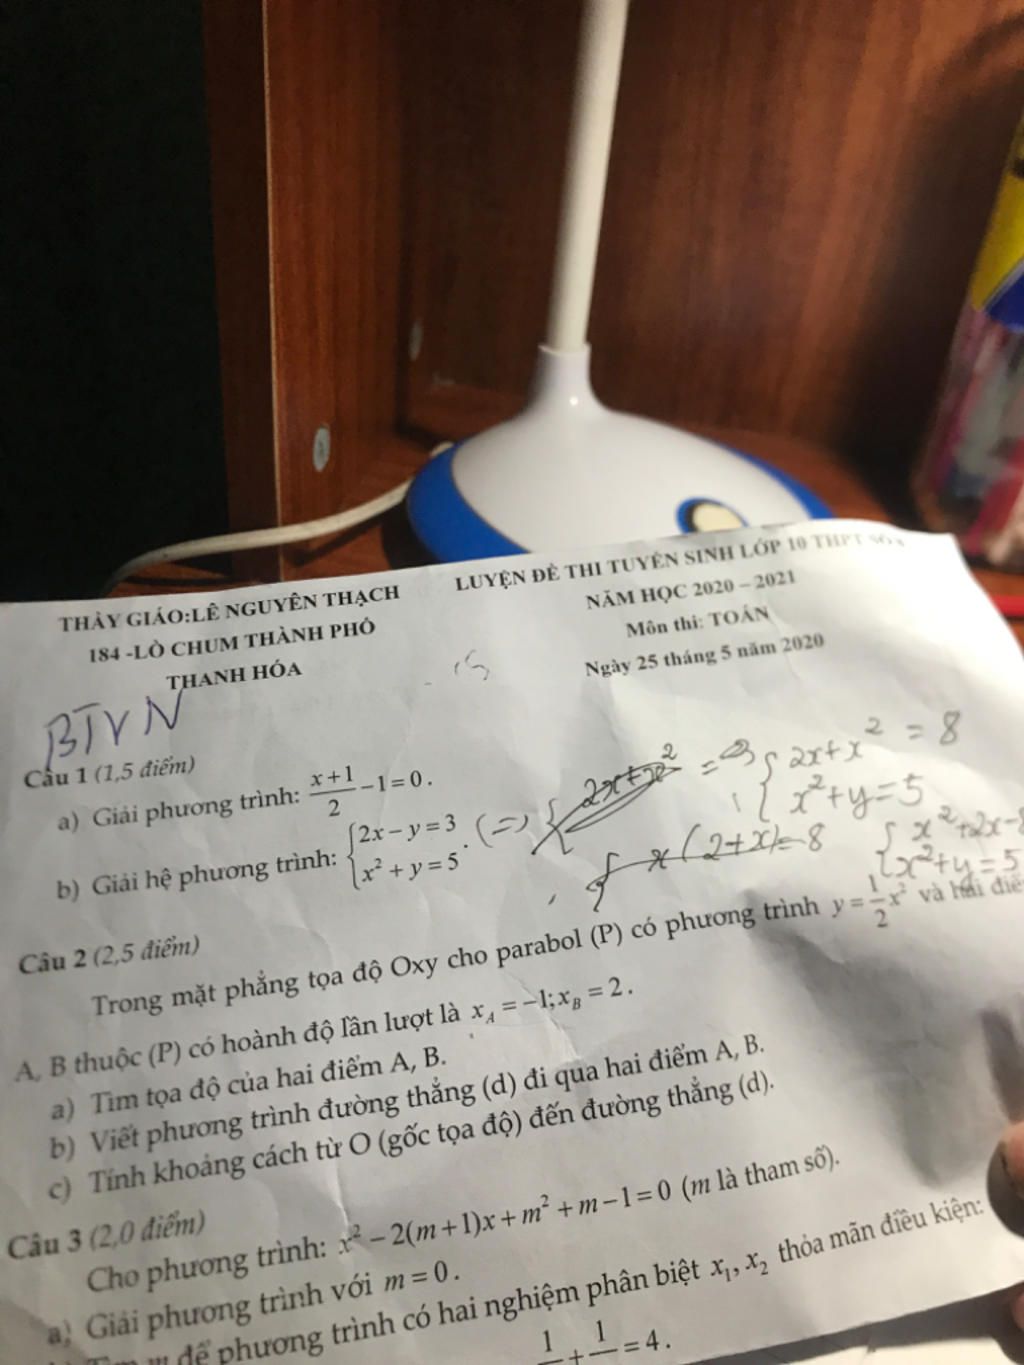 THẦY GIÁO:LÊ NGUYÊN THẠCH
184 -LÒ CHUM THÀNH PHỐ
THANH HÓA
LUYỆN ĐỀ THI TUYỂN SINH LỚP 10 THPT
NĂM HỌC 2020 – 2021
Môn thi: TOÁN
Ngày 25 tháng 5 năm 2020
BTVN
Câu 1 (1,5 điểm)
a) Giải phương trình: (x+1)/2 − 1 = 0 .
b) Giải hệ phương trình: { 2x − y = 3
x² + y = 5 .
(=)
2x+x² =
{ 2x+x² = 8
x²+y=5
x(2+x)=8
{ x²+2x-8
x²+y=5
Câu 2 (2,5 điểm)
Trong mặt phẳng tọa độ Oxy cho parabol (P) có phương trình y = 1/2 x² và hai
A, B thuộc (P) có hoành độ lần lượt là x_A = −1; x_B = 2 .
a) Tìm tọa độ của hai điểm A, B.
b) Viết phương trình đường thẳng (d) đi qua hai điểm A, B.
c) Tính khoảng cách từ O (gốc tọa độ) đến đường thẳng (d).
Câu 3 (2,0 điểm)
Cho phương trình: x² − 2(m+1)x + m² + m − 1 = 0 (m là tham số).
a) Giải phương trình với m = 0 .
để phương trình có hai nghiệm phân biệt x₁, x₂ thỏa mãn điều kiện:
1 + 1 = 4 .